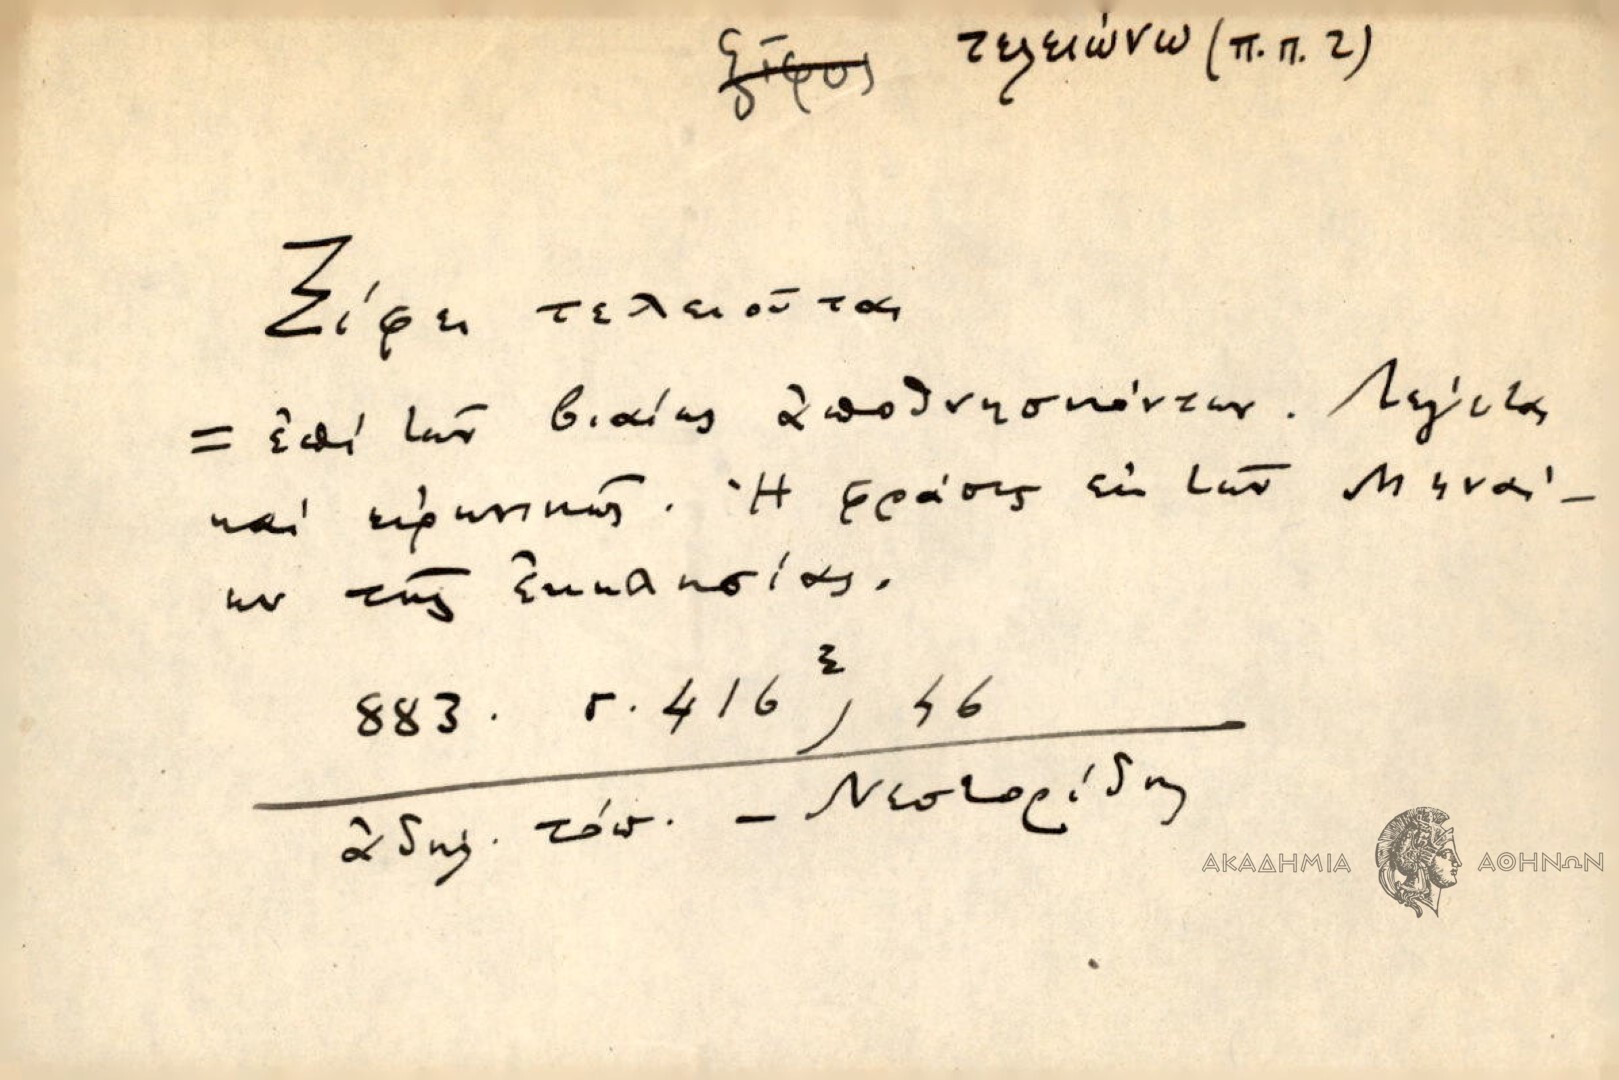 ξῖφος τελειώνω (π.π. 2)
Ξίφει τελειοῦται
= ἐπί τῶν βιαίως ἀποθνησκόντων. Λέγεται
καί εἰρηνικῶς. Ἡ φράσις ἐκ τῶν Μηναί-
ων τῆς Ἐκκλησίας.
883. σ. 416 ξ, 46
ἀδήλ. τόπ. - Νεστορίδης
ΑΚΑΔΗΜΙΑ ΑΘΗΝΩΝ